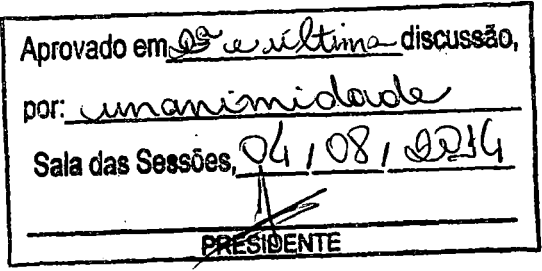 Aprovado em 2ª e última discussão,
por: unanimidade
Sala das Sessões, 04 / 08 / 2014
PRESIDENTE